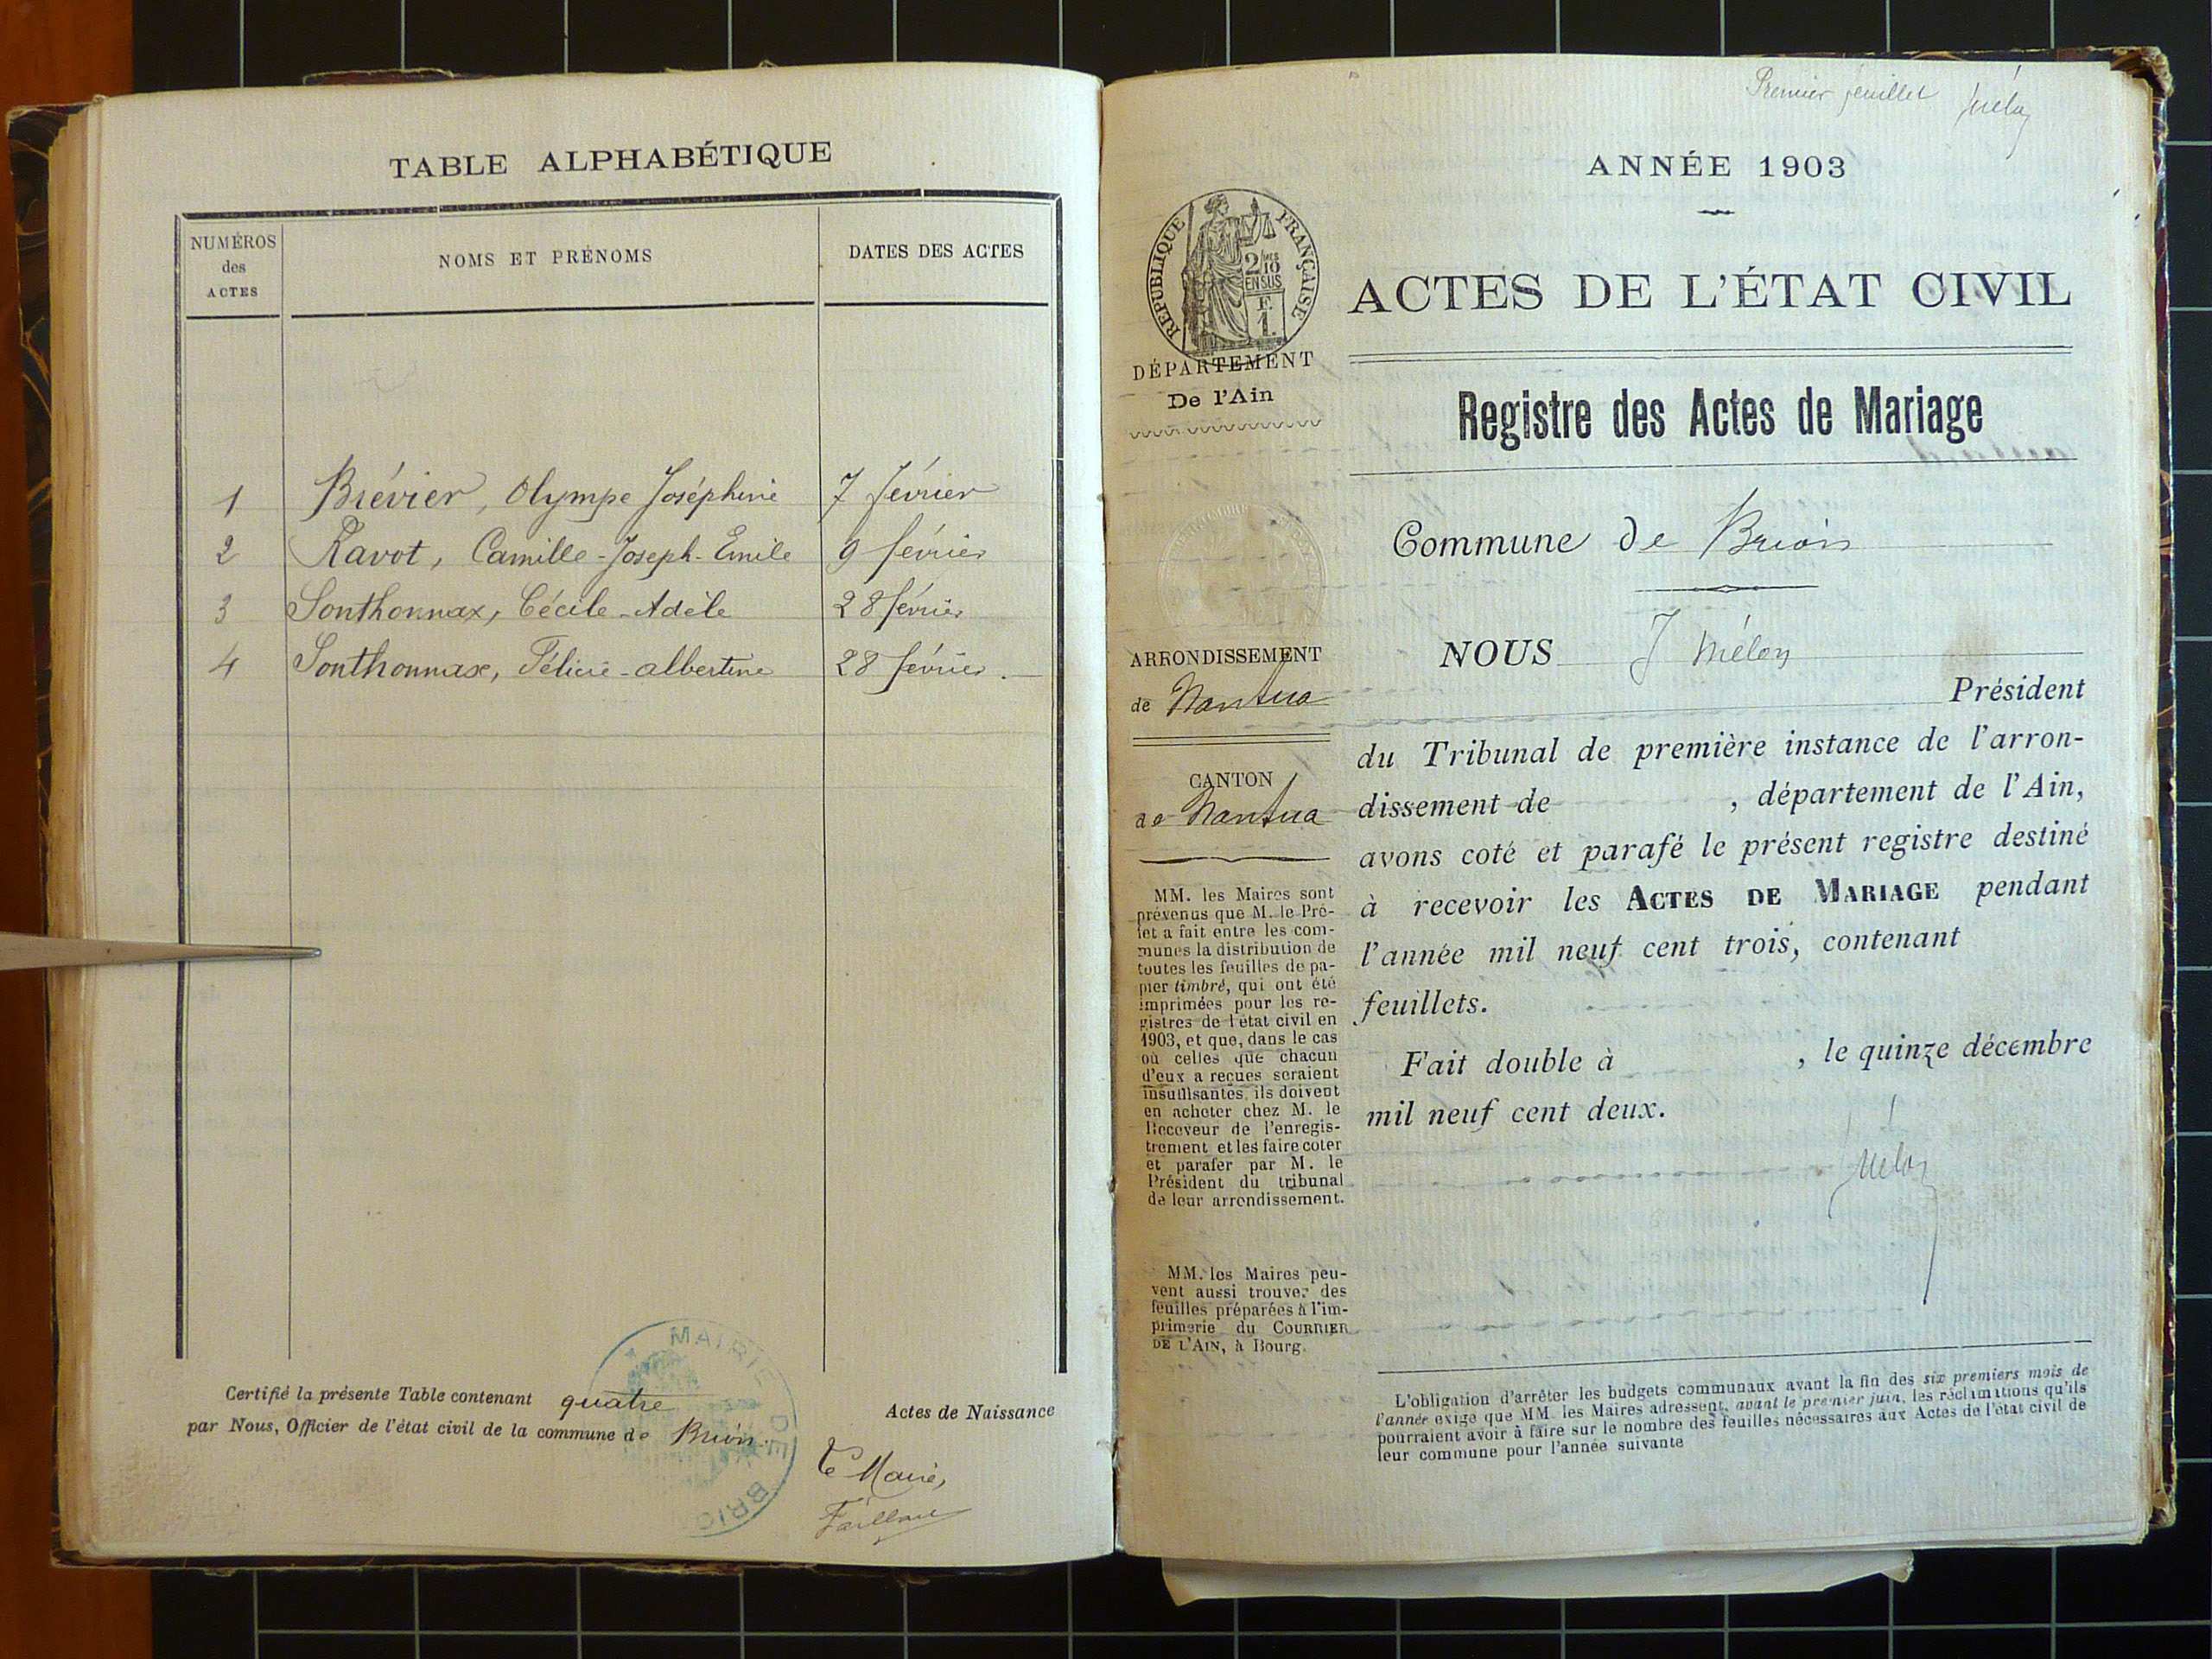 TABLE ALPHABÉTIQUE
NUMÉROS
des
ACTES
NOMS ET PRÉNOMS
DATES DES ACTES
1 Brévier, Olympe Joséphine 7 février
2 Ravot, Camille-Joseph-Emile 9 février
3 Sonthonnax, Cécile-Adèle 28 février
4 Sonthonnax, Félicie-albertine 28 février.
Certifié la présente Table contenant quatre Actes de Naissance
par Nous, Officier de l'état civil de la commune de Brion.
MAIRIE DE BRIO
Le Maire,
Premier feuillet
ANNÉE 1903
RÉPUBLIQUE FRANÇAISE
2/10
EN SUS
F.
1.
ACTES DE L'ÉTAT CIVIL
DÉPARTEMENT
De l'Ain
Registre des Actes de Mariage
Commune de Brion
ARRONDISSEMENT
de Nantua
CANTON
de Nantua
MM. les Maires sont
prévenus que M. le Pré-
fet a fait entre les com-
munes la distribution de
toutes les feuilles de pa-
pier timbré, qui ont été
imprimées pour les re-
gistres de l'état civil en
1903, et que, dans le cas
où celles que chacun
d'eux a reçues seraient
insuffisantes, ils doivent
en acheter chez M. le
Receveur de l'enregis-
trement et les faire coter
et parafer par M. le
Président du tribunal
de leur arrondissement.
MM. les Maires peu-
vent aussi trouver des
feuilles préparées à l'im-
primerie du COURRIER
DE L'AIN, à Bourg.
NOUS J Mélon
Président
du Tribunal de première instance de l'arron-
dissement de , département de l'Ain,
avons coté et parafé le présent registre destiné
à recevoir les ACTES DE MARIAGE pendant
l'année mil neuf cent trois, contenant
feuillets.
Fait double à , le quinze décembre
mil neuf cent deux.
L'obligation d'arrêter les budgets communaux avant la fin des six premiers mois de
l'année exige que MM. les Maires adressent, avant le premier juin, les réclamations qu'ils
pourraient avoir à faire sur le nombre des feuilles nécessaires aux Actes de l'état civil de
leur commune pour l'année suivante